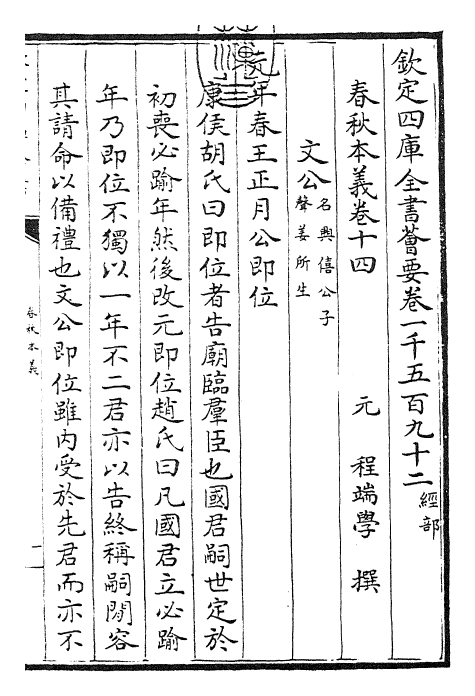 欽定四庫全書薈要卷一千五百九十二 經部
春秋本義卷十四 元 程端學 撰
文公 名興僖公子聲姜所生
元年春王正月公即位
康侯胡氏曰即位者告廟臨羣臣也國君嗣世定於
初喪必踰年然後改元即位趙氏曰凡國君立必踰
年乃即位不獨以一年不二君亦以告終稱嗣閒容
其請命以備禮也文公即位雖内受於先君而亦不
春秋本義